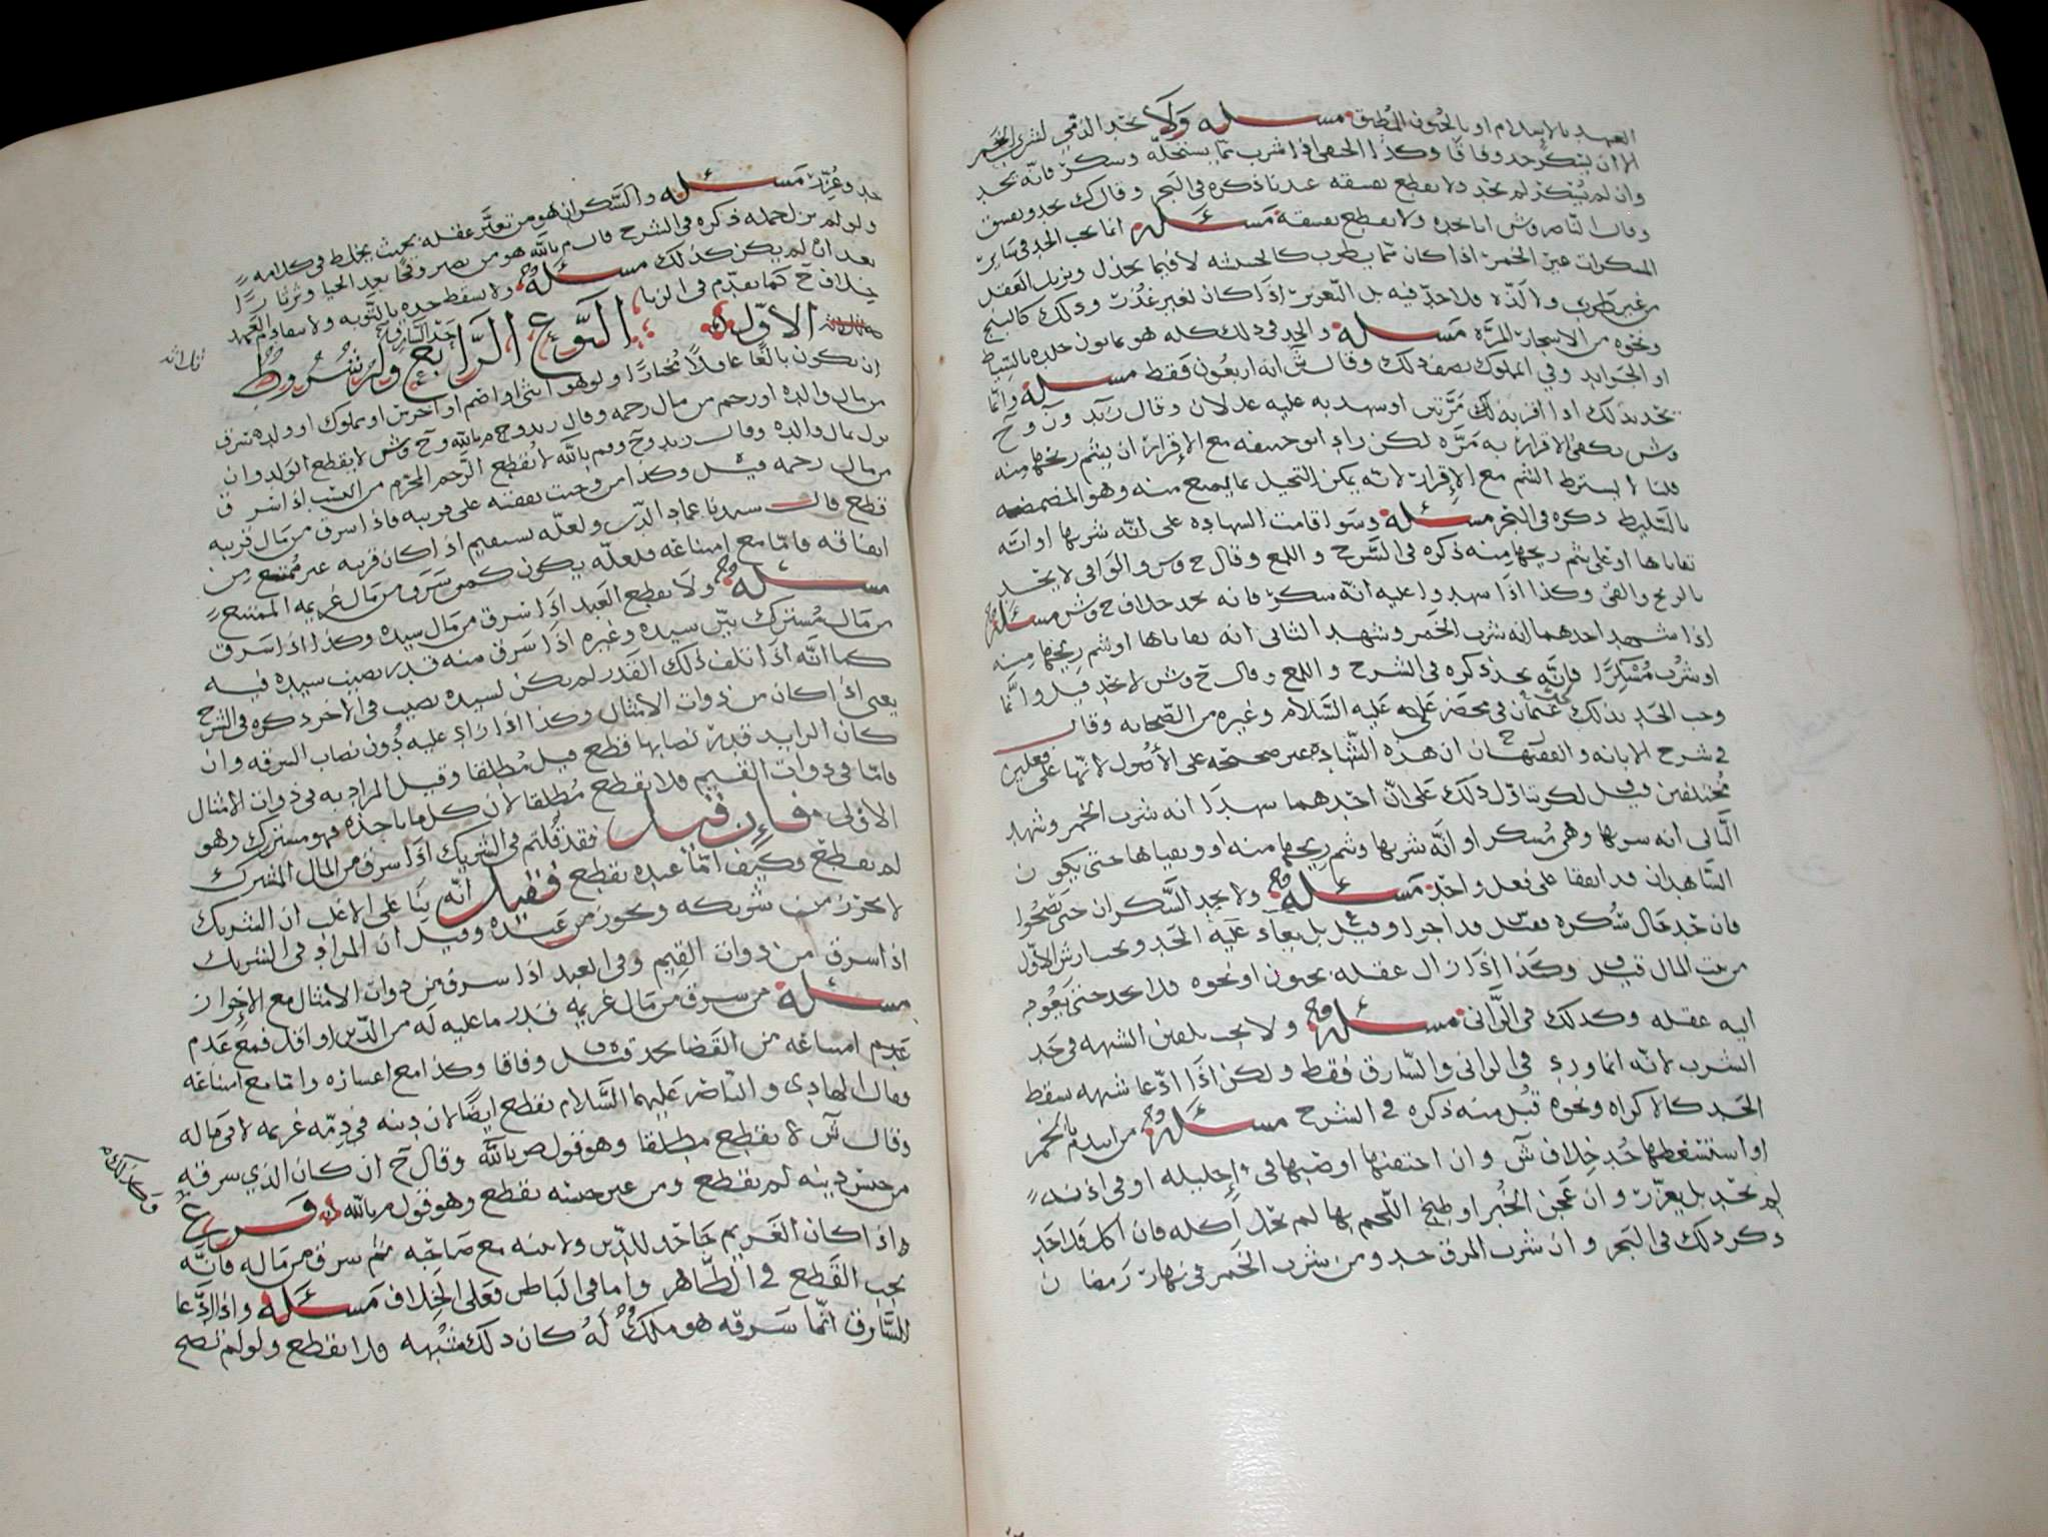 العهد بالاسلام او بالجنون المطبق مسئله ولا يحد الذمي لشرب الخمر
الا ان يسكر حد وفاقا وكذا الحنفي اذا شرب ما يستحله وسكر فانه يحد
وان لم يسكر لم يحد ولا يقطع بفسقه عندنا ذكره في البحر وقال ك يحد ويفسق
وقال الناصر وش انا نحده ولا نقطع بفسقه مسئله انما يجب الحد في سائر
المسكرات غير الخمر اذا كان مما يطرب كالحشيشه لا فيما يخدل ويزيل العقل
من غير طرب ولا لذه فلا حد فيه بل التعزير اذا كان لغير عذر وذلك كالبنج
ونحوه من الاشجار المره مسئله والحد في ذلك كله هو ثمانون جلده بالسياط
او الجرايد وفي المملوك نصف ذلك وقال ش انه اربعون فقط مسئله وانما
يحد بذلك اذا اقر به مرتين او شهد به عليه عدلان وقال زيد و ن و ح
وش يكفي الاقرار به مره لكن زاد ابو حنيفه مع الاقرار ان يشم ريحها منه
قلنا لا يشترط الشم مع الاقرار لانه يمكن التحيل بما يمنع منه وهو المضمضه
بالسليط ذكره في البحر مسئله وسوا قامت الشهاده على انه شربها او انه
تقاياها او على شم ريحها منه ذكره في الشرح و اللمع وقال ح وش والوافي لا يحد
بالريح والقي وكذا اذا شهدوا عليه انه سكر فانه يحد خلاف ح وش مسئله
اذا شهد احدهما انه شرب الخمر وشهد الثاني انه تقاياها او شم ريحها منه
او شرب مسكرا فانه يحد ذكره في الشرح و اللمع وقال ح وش لا يحد قيل وانما
وجب الحد بذلك عن عثمان في محضر علي عليه السلام وغيره من الصحابه وقال
في شرح الابانه و الفقيهان ان هذه الشهاده غير صحيحه على الأصول لانها على فعلين
مختلفين وقيل لكن تاول ذلك على ان احدهما شهد انه شرب الخمر وشهد
الثاني انه شربها وهي مسكر او انه شربها وشم ريحها منه او وتقياها حتى يكون
الشاهدان قد اتفقا على فعل واحد مسئله ولا يحد السكران حتى يصحوا
فان حد حال سكره فقيل قد اجزا وقيل بل يعاد عليه الحد ويجب ارش الاول
من بيت المال قيل وكذا اذا زال عقله بجنون او نحوه فلا يحد حتى يعود
اليه عقله وكذلك في الزاني مسئله ولا يجب تلقين الشبهه في حد
الشرب لانه انما ورد في الزاني والسارق فقط ولكن اذا ادعا شبهه سقط
الحد كالاكراه ونحوه قبل منه ذكره في الشرح مسئله من ايتدم بالخمر
او استشعطها حد خلاف ش وان احتقنها او صبها في إحليله او في اذنه
لم يحد بل يعزر وان عجن الخبز او طبخ اللحم بها لم يحل اكله فان اكل قد احد
ذكر ذلك في البحر وان شرب المرق حد ومن شرب الخمر في نهار رمضان
حد وعزر مسئله والسكران هو من تغير عقله بحيث يخلط في كلامه
ولو لم يزل جمله ذكره في الشرح قال م بالله هو من يصير وقحا بعد الحيا وثرثارا
بعد ان لم يكن كذلك مسئله ولا يسقط حده بالتوبه ولا بتقادم العهد
خلاف ح كما تقدم في الزنا النوع الرابع حد السارق وله شروط
الاول
ان يكون بالغا عاقلا مختارا ولو هو انثى او اصم او اخرس او مملوك او ولد سرق
من مال والده او رحم من مال رحمه وقال زيد وح وم بالله وح وش لا يقطع الولد وان
نزل بمال والده وقال زيد وح وم بالله لا يقطع الرحم المحرم من النسب اذا سرق
من مال رحمه قيل وكذا من وجبت نفقته على قريبه فاذا سرق من مال قريبه
قطع قال سيدنا عماد الدين ولعله يستقيم اذا كان قريبه غير ممتنع من
انفاقه فاما مع امتناعه فلعله يكون كمن سرق من مال غريمه الممتنع
مسئله ولا يقطع العبد اذا سرق من مال سيده وكذا اذا سرق
من مال مشترك بين سيده وغيره اذا سرق منه قدر نصيب سيده فيه
كما انه اذا تلف ذلك القدر لم يكن لسيده نصيب في الاخر ذكره في الشرح
يعني اذا كان من ذوات الامثال وكذا اذا زاد عليه دون نصاب السرقه وان
كان الزايد قدر نصابها قطع قيل مطلقا وقيل المراد به في ذوات الامثال
فاما في ذوات القيم فلا يقطع مطلقا لان كل ما ياخذه فهو مشترك وهو
الاولى فإن قيل فقد قلتم في الشريك اذا سرق من المال المشترك
لم يقطع وكيف اما عبده يقطع فقيل انه بنا على الاغلب ان الشريك
لا يحرز من شريكه ويحرز من عبده وقيل ان المراد في الشريك
اذا سرق من ذوات القيم وفي العبد اذا سرق من ذوات الامثال مع الاحراز
مسئله من سرق من مال غريمه قدر ما عليه له من الدين او اقل فمع عدم
عدم امتناعه من القضا يحد قيل وفاقا وكذا مع اعساره واما مع امتناعه
وقال الهادي والناصر عليهما السلام يقطع ايضا لان دينه في ذمه غريمه لا في ماله
وقال ش لا يقطع مطلقا وهو قول ص بالله وقال ح ان كان الذي سرقه
من جنس دينه لم يقطع ومن غير جنسه يقطع وهو قول م بالله فرع
واذا كان الغريم جاحد للدين ولا بينه مع صاحبه ثم سرق من ماله فانه
يجب القطع في الظاهر واما في الباطن فعلى الخلاف مسئله واذا ادعا
السارق انما سرقه هو ملك له كان ذلك شبهه فلا يقطع ولو لم تصح